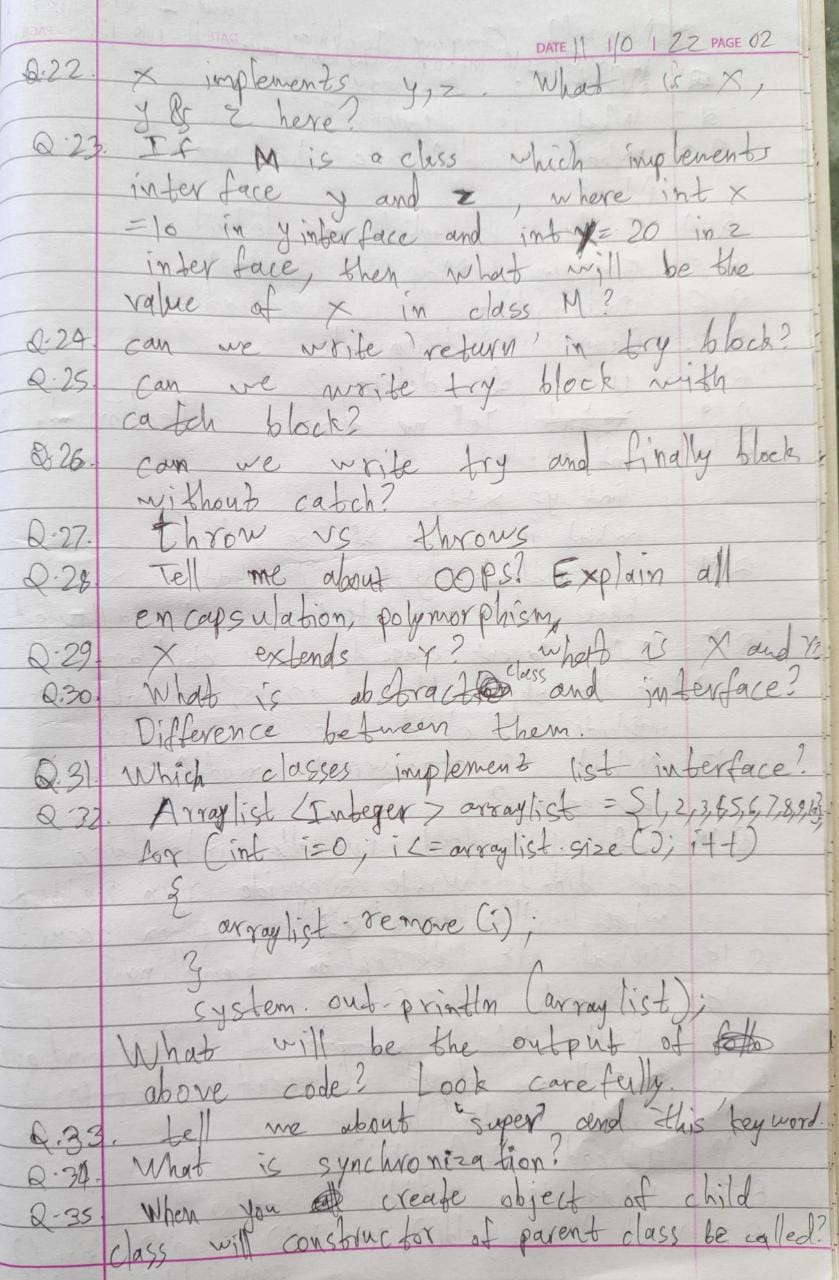 DATE 11 10 22 PAGE 02
Q.22. X implements y,z. What is X,
y & z here?
Q.23. If M is a class which implements
interface y and z, where int x
=10 in y interface and int x = 20 in z
interface, then what will be the
value of x in class M?
Q.24. can we write 'return' in try block?
Q.25. can we write try block with
catch block?
Q.26. can we write try and finally block
without catch?
Q.27. throw vs throws
Q.28 Tell me about OOPS? Explain all
encapsulation, polymorphism,
Q.29. X extends Y? What is X and Y?
Q.30. What is abstract class and interface?
Difference between them.
Q.31 Which classes implement list interface?
Q.32. Arraylist <Integer> arraylist = {1,2,3,4,5,6,7,8,9,10};
for (int i=0, i<=arraylist.size(); i++)
{
arraylist.remove(i);
}
system.out.println (arraylist);
What will be the output of
above code? Look carefully.
Q.33. tell me about "super" and "this" keyword.
Q.34. What is synchronization?
Q.35 When you create object of child
class will constructor of parent class be called?